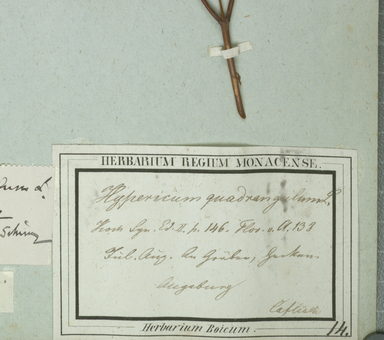 HERBARIUM REGIUM MONACENSE.
Hypericum quadrangulum L.
Koch Syn. Ed. 2. p. 146. Flor. v. A. 133
Jul. Aug. An Gräben, Hecken.
Augsburg
Caflisch
Herbarium Boicum.
14.
L.